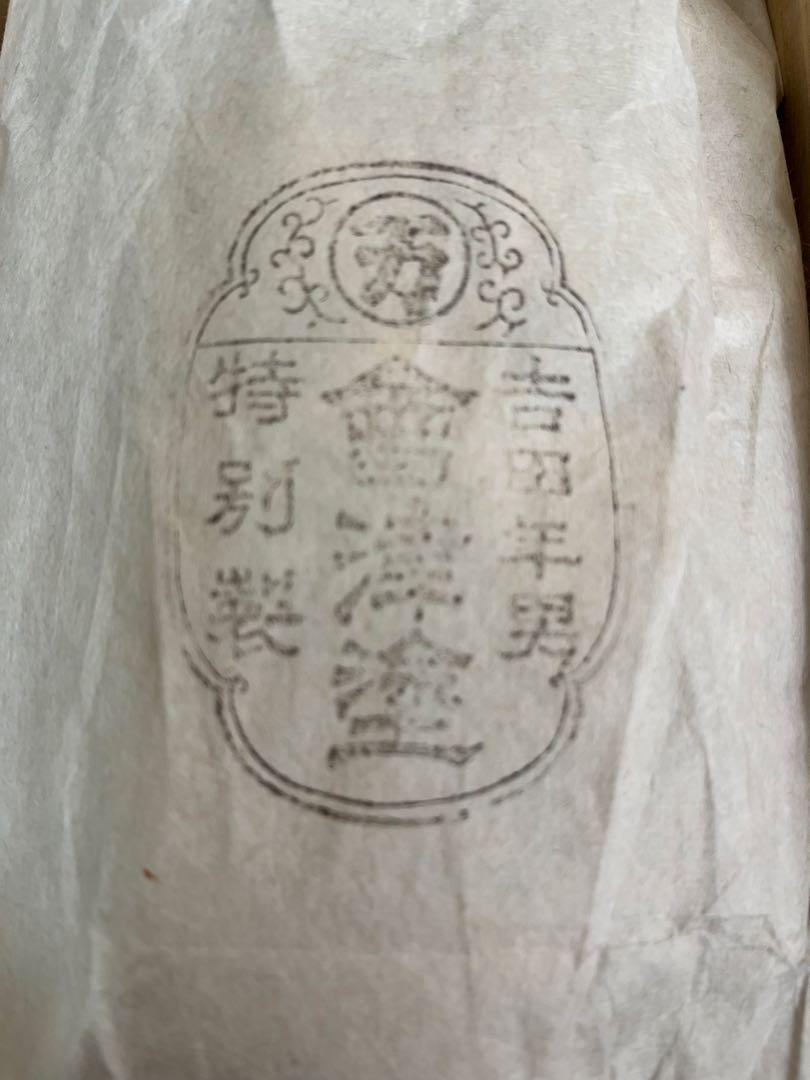 吉田年男
會津塗
特別製